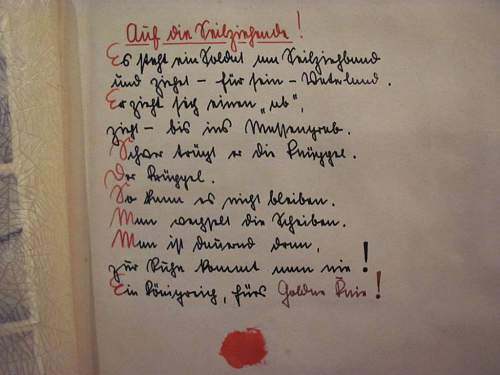 Auf die Seilziehende!
Es steht ein Soldat am Seilziehbund
und ziehet – für sein – Vaterland.
Er zieht sich einen „ab",
zieht – bis ins Massengrab.
Schwer trägt er die Knüppel.
Der Krüppel.
So kann es nicht bleiben.
Man wechselt die Scheiben.
Man ist dauernd dran,
zur Ruhe kommt man nie!
Ein Königreich, fürs Goldne Knie!